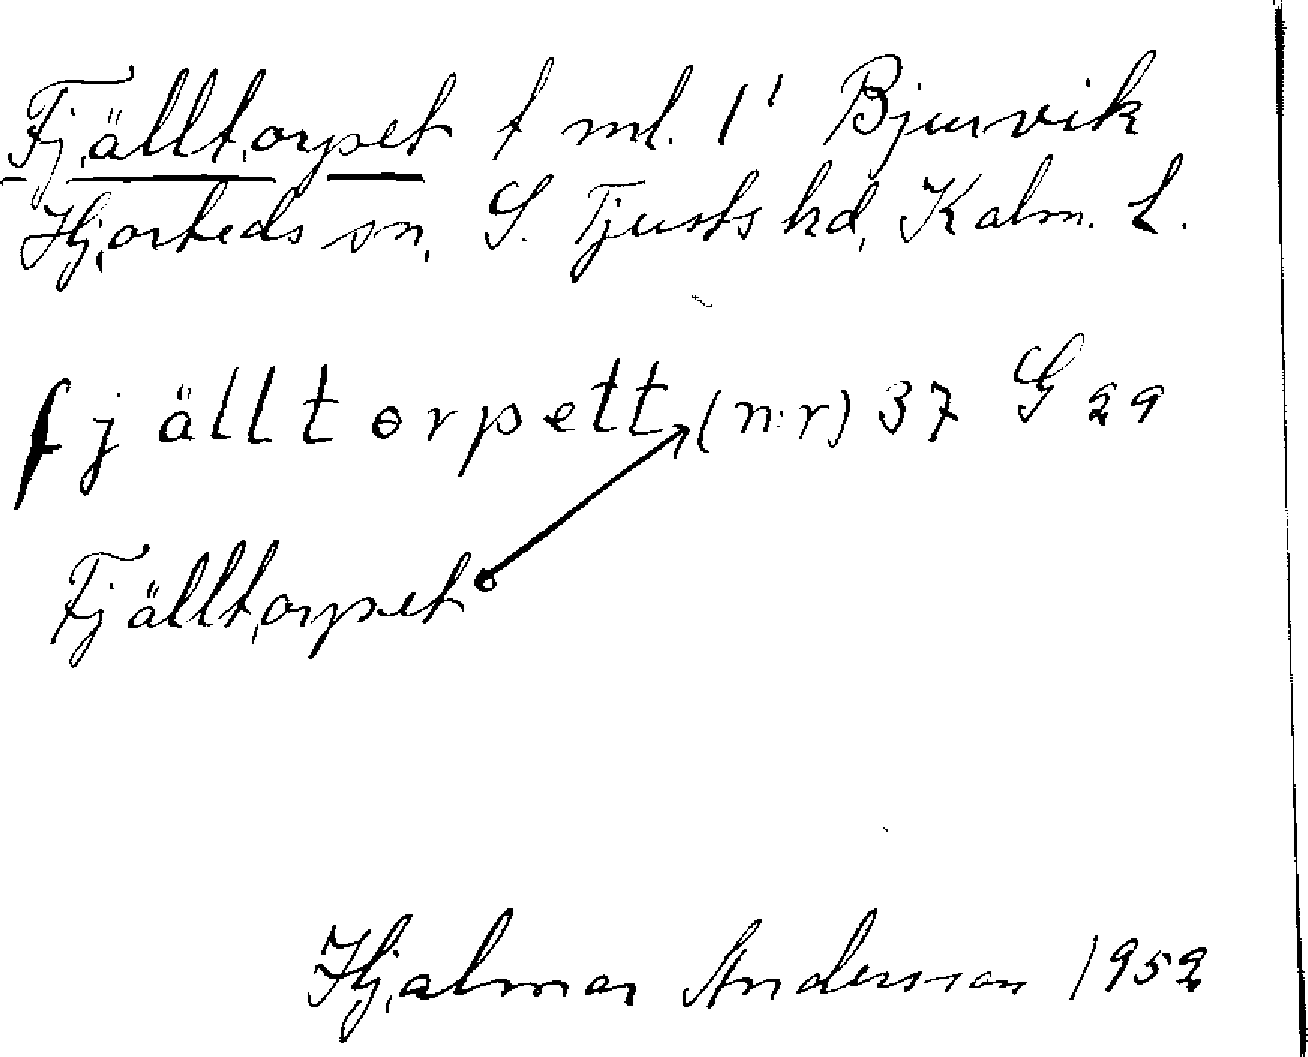 Fjälltorpet t ml. 1' Bjurvik
Hjorteds sn, S. Tjusts hd, Kalm. L.
fjälltorpett, (n:r) 37 G 29
Fjälltorpet
Hjalmar Andersson 1952